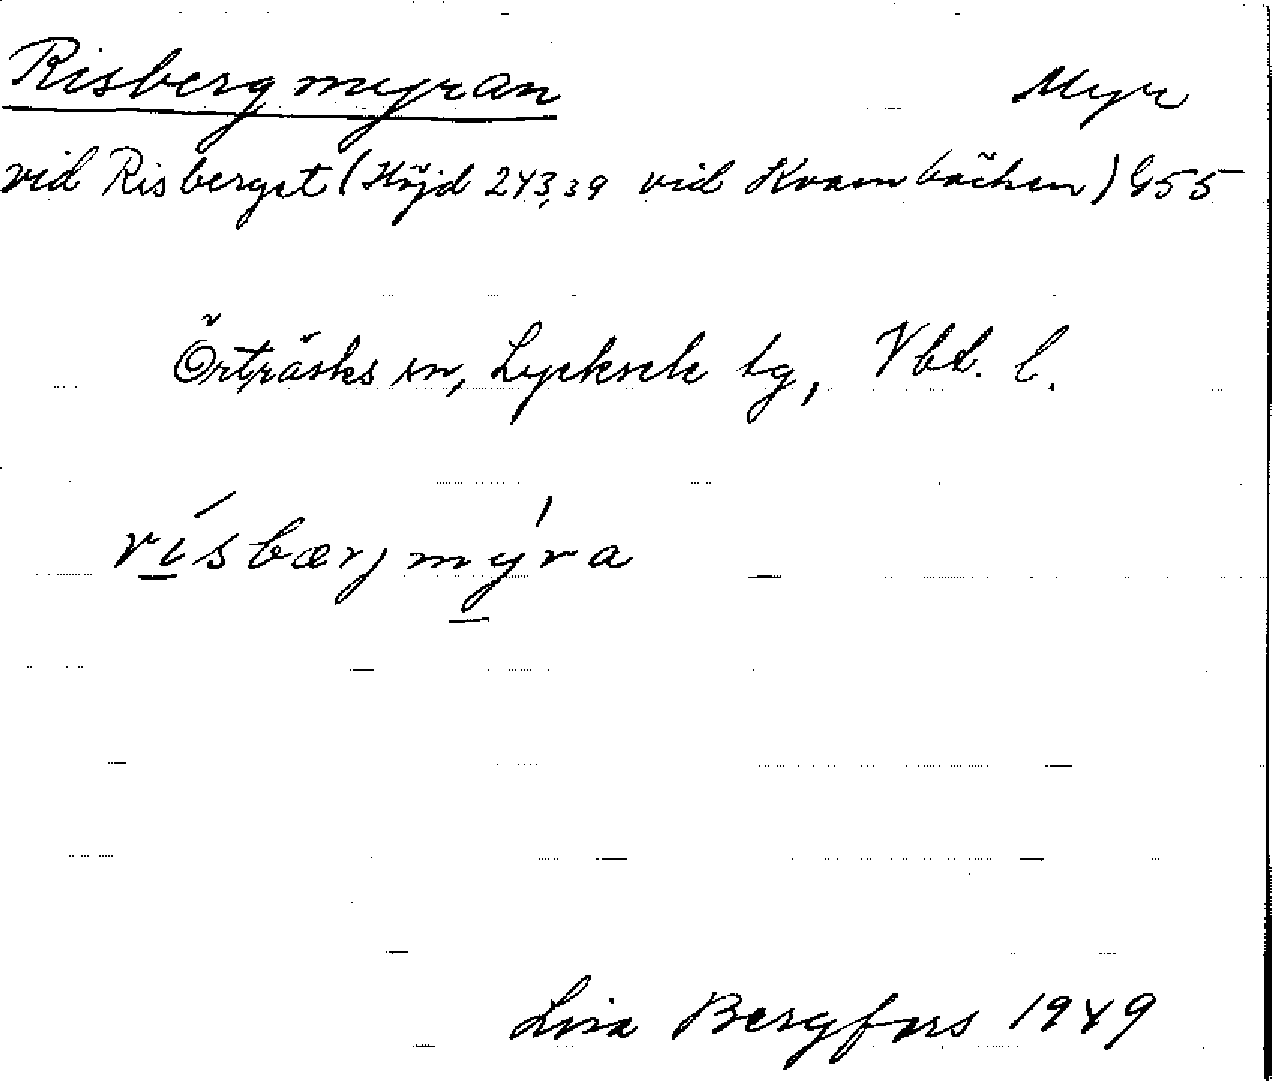 Risbergmyran Myr
vid Risberget (Höjd 243,39 vid Kvarnbäcken) G55
Örträsks sn, Lycksele lg, Vbt. l.
rísbærjmýra
Lisa Bergfors 1949